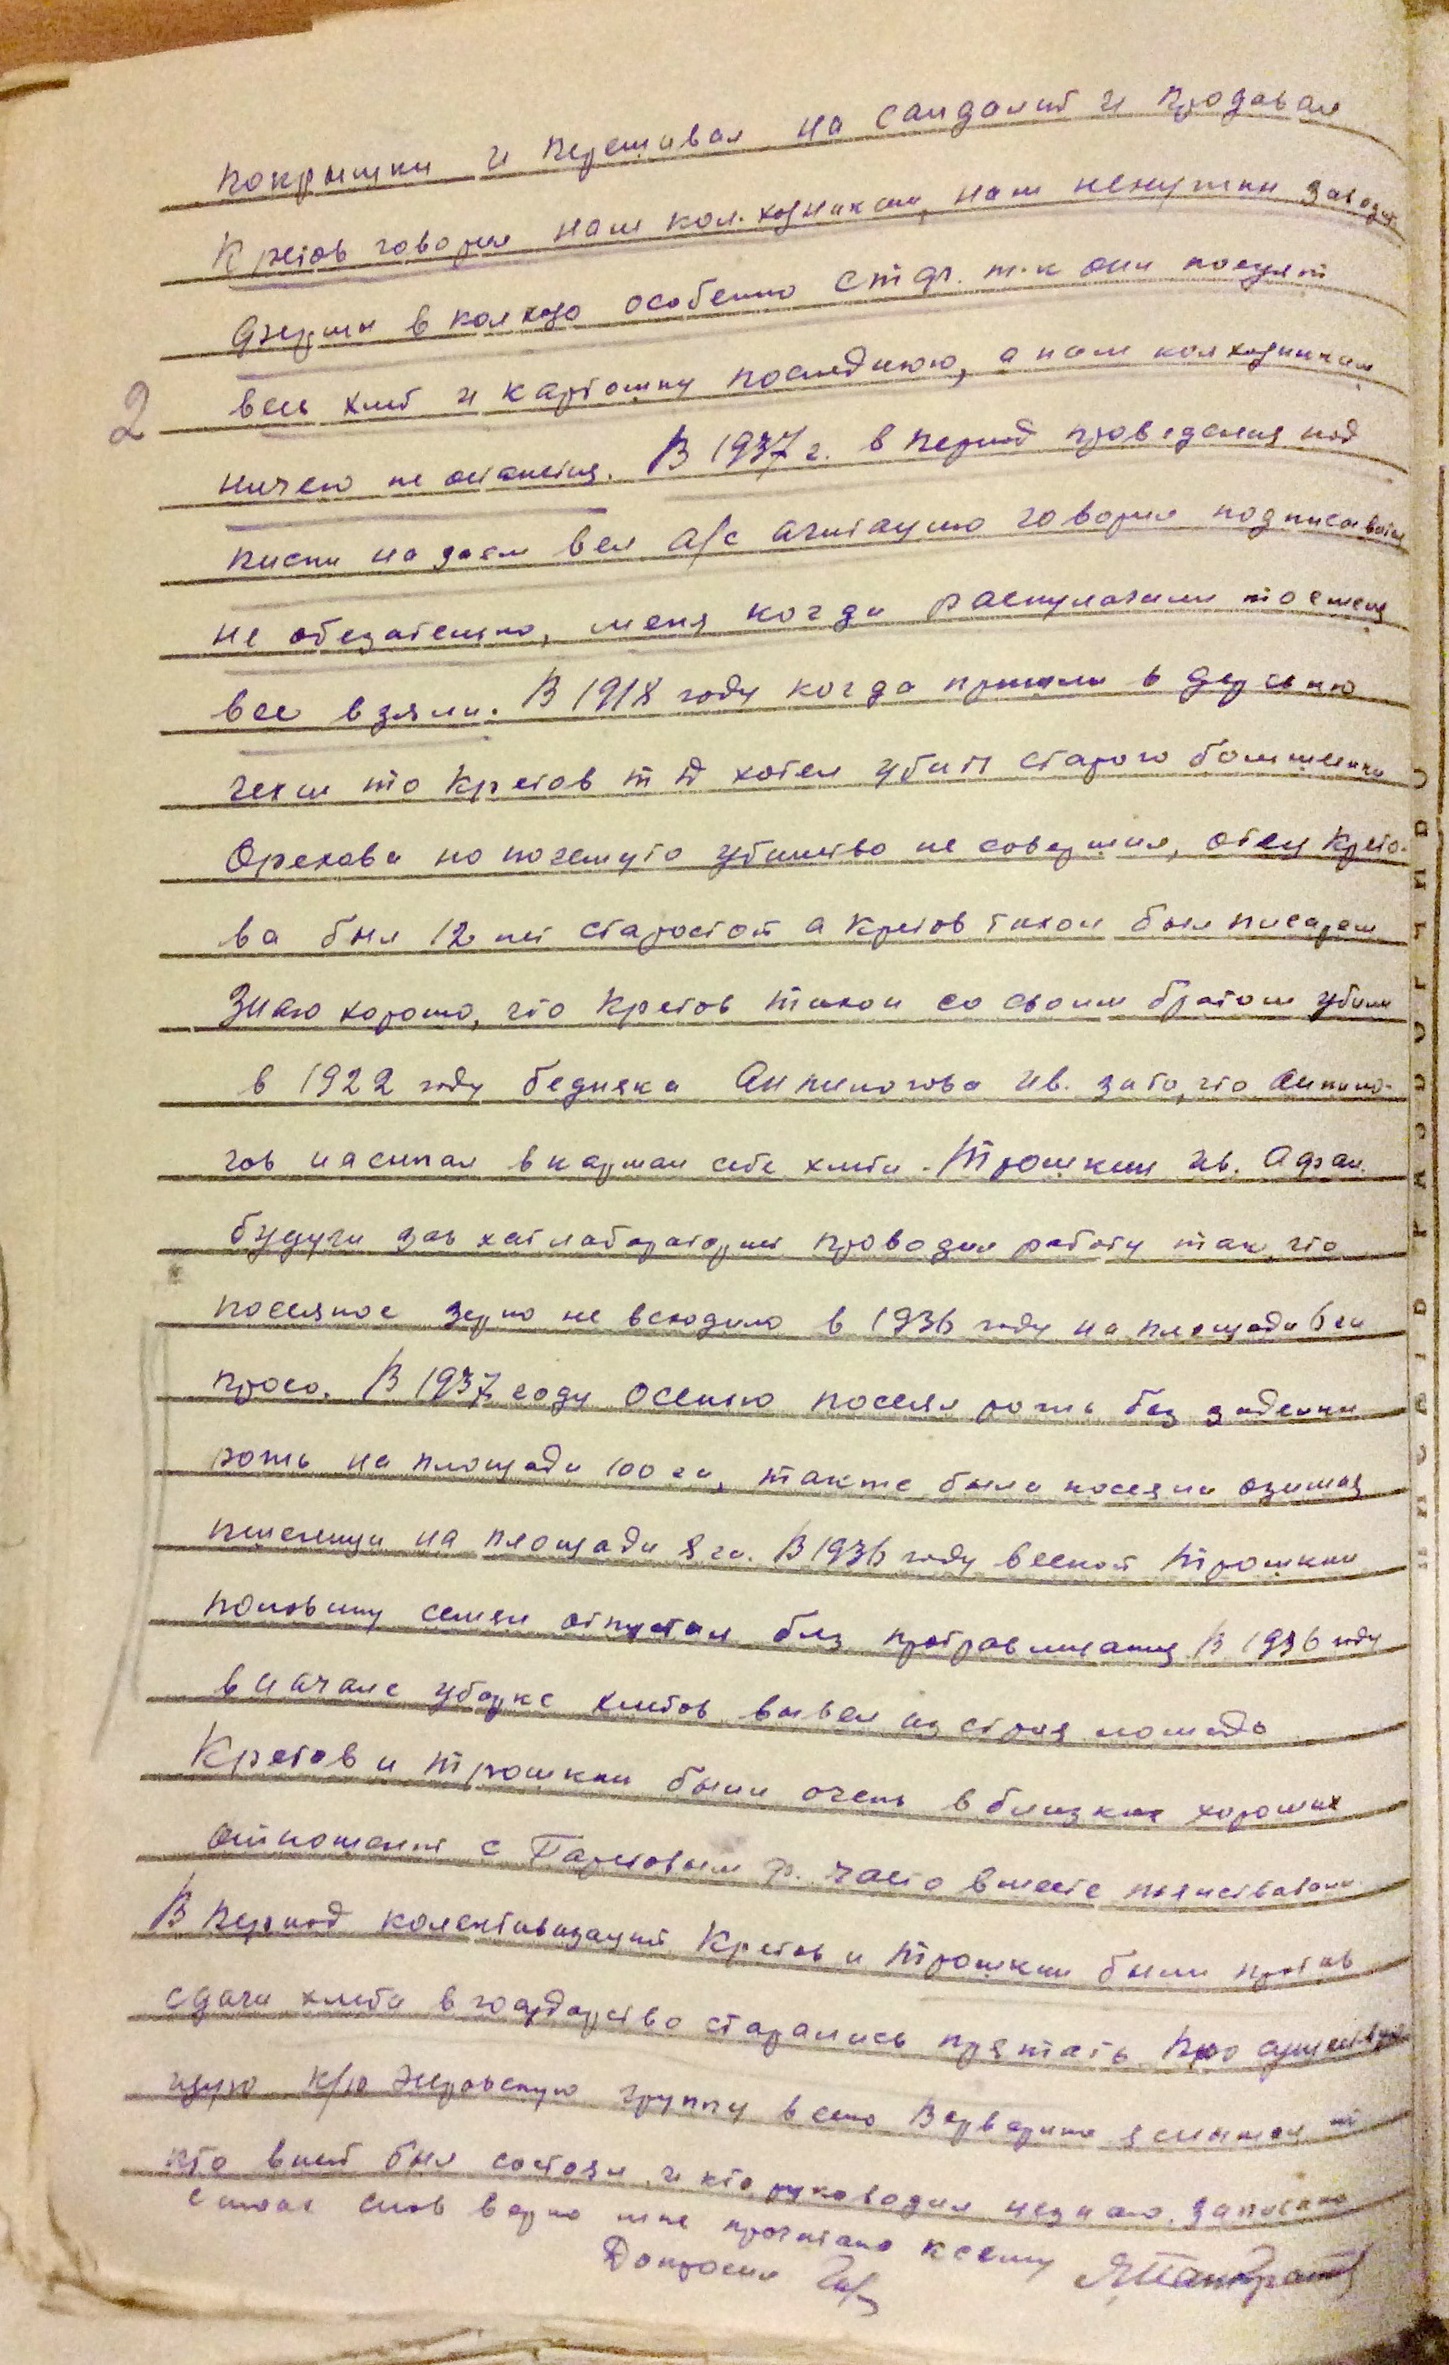 покрышки и перешивал на сандалий и продавал
Кретов говорил нам колхозникам, нам ненужны заводит
дружбы в колхозе особенно с т.к они поедят
весь хлеб и картошку последнюю, а нам колхозникам
ничего не останется. В 1937 г. в период проведения под
писки на заем вел а/с агитацию говорил подписыватся
не обезательно, меня когда раскулачили то меня
все взяли. В 1918 году когда пришли в деревню
чехи то Кретов хотел убить старого большевика
Орехова но почемуто убийство не совершил, отец Крето-
ва был 12 лет старостой а Кретов Тихон был писарем
Знаю хорошо, что Кретов Тихон со своим братом убили
в 1922 году бедняка Анпилогова Ив. зато, что Анпило-
гов насыпал в карман себе хлеба. Трошкин Ив. Афан.
будучи зав хатлабораторией проводил работу так, что
посеяное зерно не всходило в 1936 году на площади 6 га
просо. В 1937 году осенью посеял рожь без заделки
рожь на площади 100 га, также была посеяна озимая
пшеница на площади 8 га. В 1936 году весной Трошкин
половину семян отпустил без протравливания В 1936 году
вначале уборке хлебов вывел из строя лошадь
Кретов и Трошкин были очень в близких хороших
отношений с Паретовым Ф. часто вместе пянствовали
В период колективизаций Кретов и Трошкин были против
сдачи хлеба в государство старались прятать. Про существую
щую к/р группу в село Варварино я слышал но
кто в ней был состоял и кто руководил незнаю. Записано
с моих слов верно мне прочитано к сему
Допросил